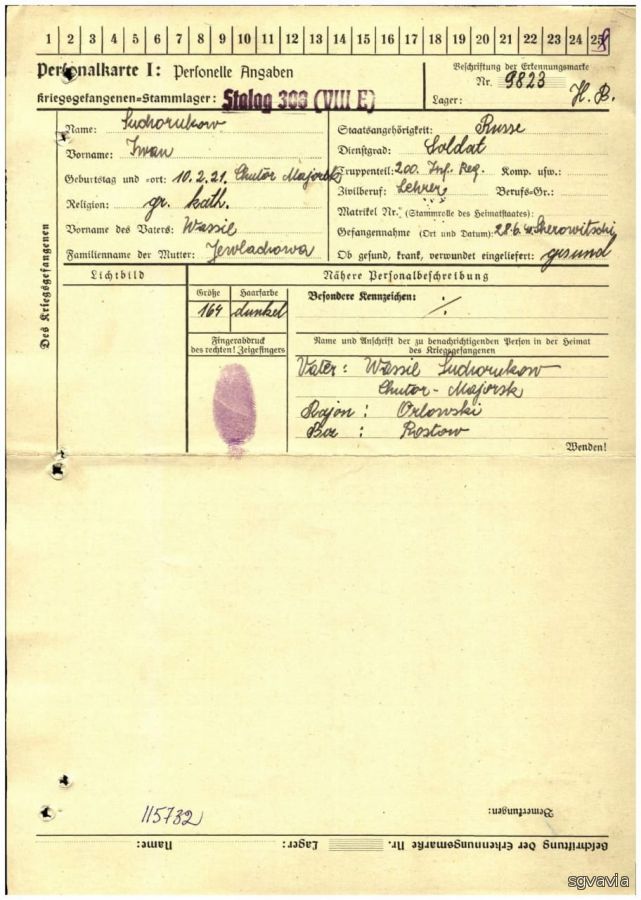 1 2 3 4 5 6 7 8 9 10 11 12 13 14 15 16 17 18 19 20 21 22 23 24 25
Personalkarte I: Personelle Angaben
Kriegsgefangenen=Stammlager: Stalag 308 (VIII E)
Beschriftung der Erkennungsmarke
Nr. 9823
Lager: H. B.
Des Kriegsgefangenen
Name: Suchorukow
Vorname: Iwan
Geburtstag und =ort: 10.2.21. Chutor Majorsk
Religion: gr. kath.
Vorname des Vaters: Wassil
Familienname der Mutter: Jewlachowa
Staatsangehörigkeit: Russe
Dienstgrad: Soldat
Truppenteil: 200. Inf. Reg. Komp. usw.:
Zivilberuf: Lehrer Berufs=Gr.:
Matrikel Nr. (Stammrolle des Heimatstaates):
Gefangennahme (Ort und Datum): 28.6.41
Ob gesund, krank, verwundet eingeliefert: gesund
Lichtbild
Nähere Personalbeschreibung
Größe
164
Haarfarbe
dunkel
Besondere Kennzeichen: ./.
Fingerabdruck
des rechten! Zeigefingers
Name und Anschrift der zu benachrichtigenden Person in der Heimat
des Kriegsgefangenen
Vater: Wassil Suchorukow
Chutor-Majorsk
Rajon: Orlowski
Rostow
Wenden!
115732
Bemerkungen:
Beschriftung der Erkennungsmarke Nr. Lager: Name:
sgvavia